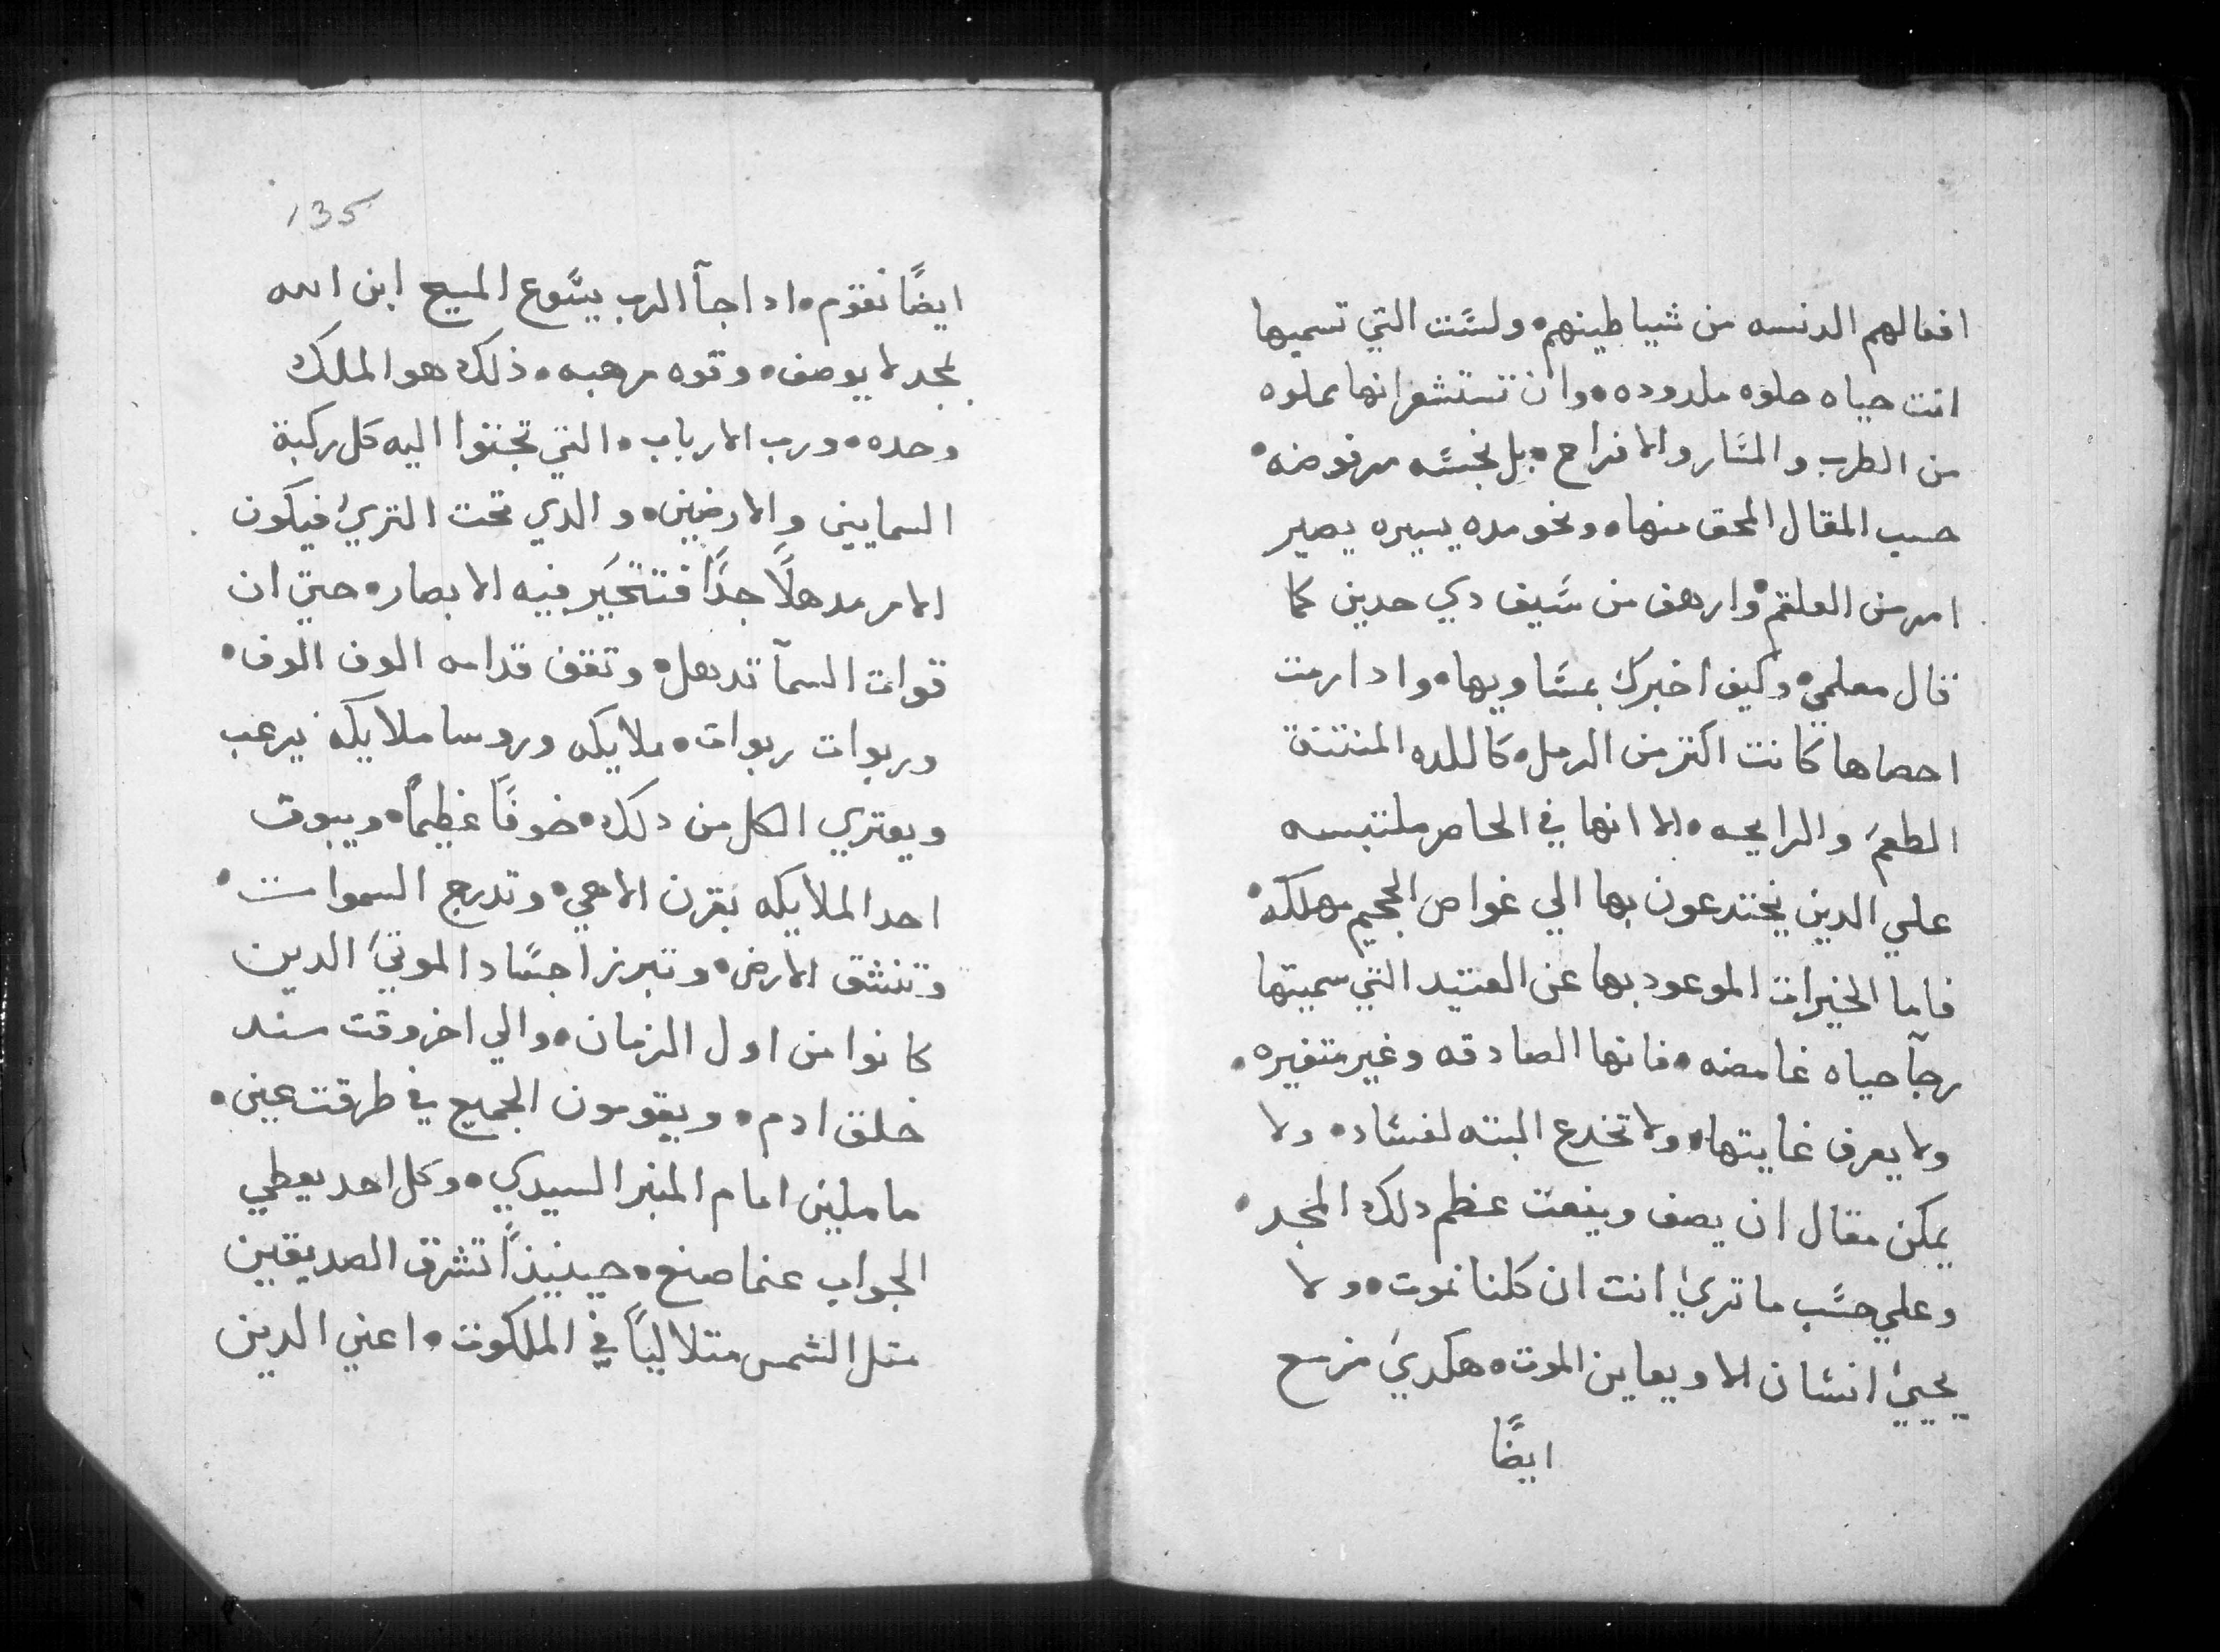 افعالهم الدنسه من شياطينهم• وليست التي تسميها
انت حياه حلوه ملدوده• وان تستشعر انها مملوه
من الطرب والمسار والافراح• بل نجسه مرفوضه•
حسب المقال المحق منها• ونحو مده يسيره يصير
امر من العلقم• وارهف من سيف دي حدين كما
قال معلمي• وكيف اخبرك بمساويها• وادا رمت
احصاها كانت اكتر من الرمل• كاللده المنتنة
الطعم والرايحه• الا انها في الحاضر ملتبسه
علي الدين يختدعون بها الي غواص الجحيم مهلكه•
فاما الخيرات الموعود بها عن العتيد التي سميتها
رجآ حياه غامضه• فانها الصادقه وغير متغيره•
ولا يعرف غايتها• ولا تخدع البته لفساد• ولا
يمكن مقال ان يصف وينعت عظم دلك المجد•
وعلي حسب ما تري انت ان كلنا نموت• ولا
يحيي انسان الا ويعاين الموت• هكدي مزمع
ايضًا
135
ايضًا نقوم• ادا جآ الرب يسوع المسيح ابن الله
بمجد لا يوصف• وقوه مرهبه• ذلك هو الملك
وحده• ورب الارباب• التي تجتوا اليه كل ركبة
السمايين والارضيين• والدي تحت التري فيكون
الامر مدهلًا جدًا فتتحير فيه الابصار• حتي ان
قوات السمآ تدهل• وتقف قدامه الوف الوف•
وربوات ربوات• ملايكه وروسا ملايكه برعب
ويعتري الكل من دلك• خوفًا عظيمًا• ويبوق
احد الملايكه بقرن الاهي• وتدرج السموات•
وتنشق الارض• وتبرز اجساد الموتي الدين
كانوا من اول الزمان• والي اخر وقت مند
خلق ادم• ويقومون الجميع في طرقت عين•
ماملين امام المنبر السيدي• وكل احد يعطي
الجواب عنما صنع• حينيذًا تشرق الصديقين
متل الشمس متلاليًا في الملكوت• اعني الدين